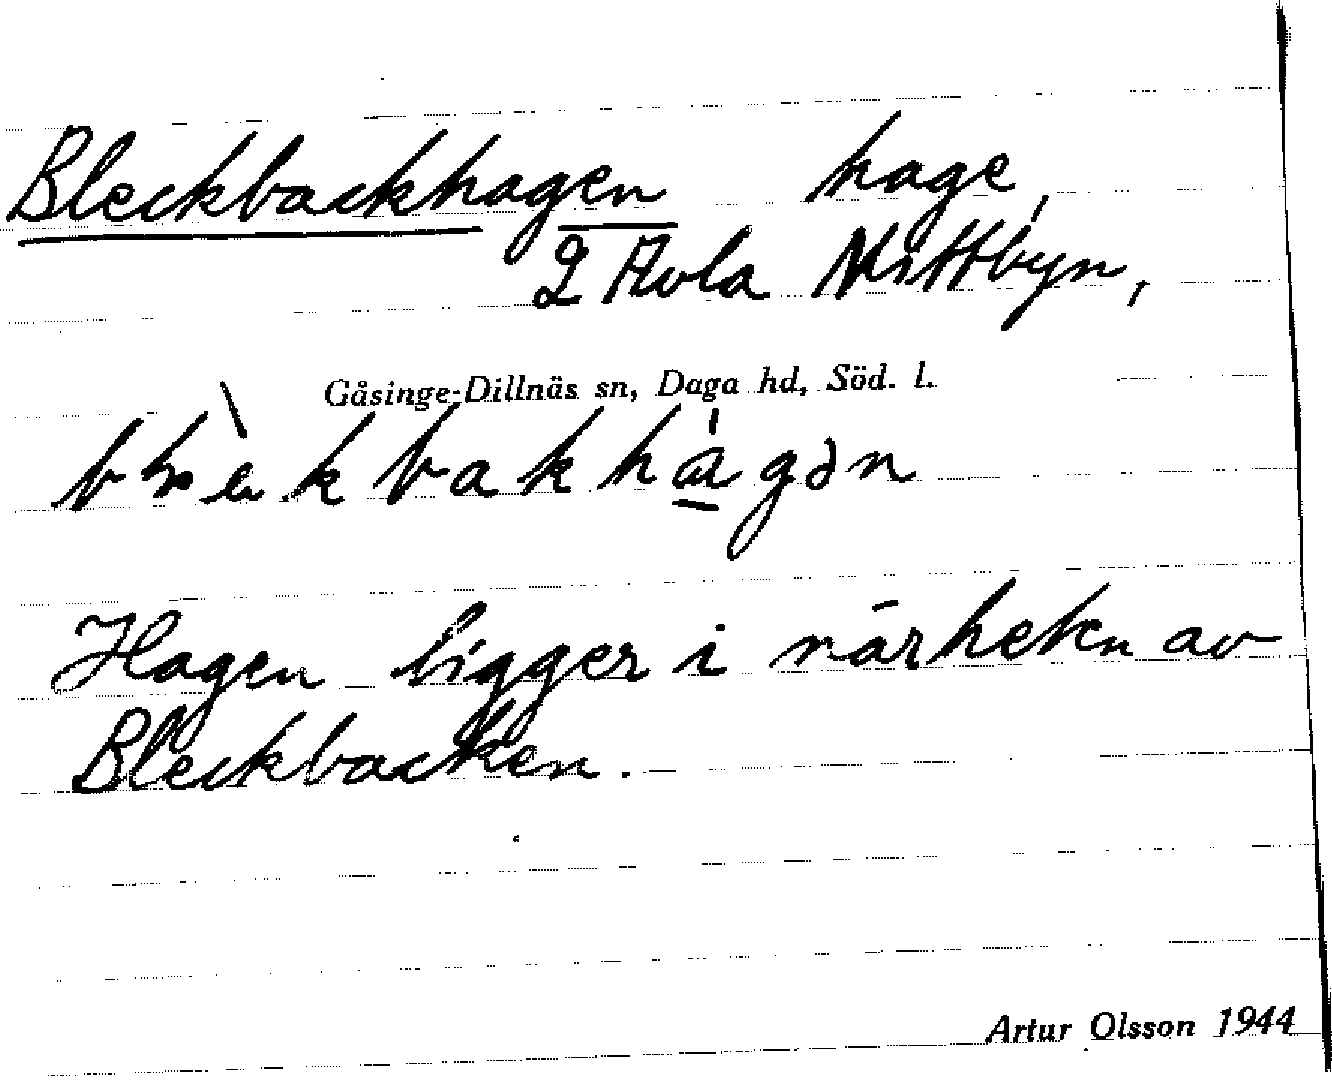 Bleckbackhagen hage,
2 Avla Mittbyn,
Gåsinge-Dillnäs sn, Daga hd, Söd. l.
Hagen ligger i närheten av
Bleckbacken.
Artur Olsson 1944